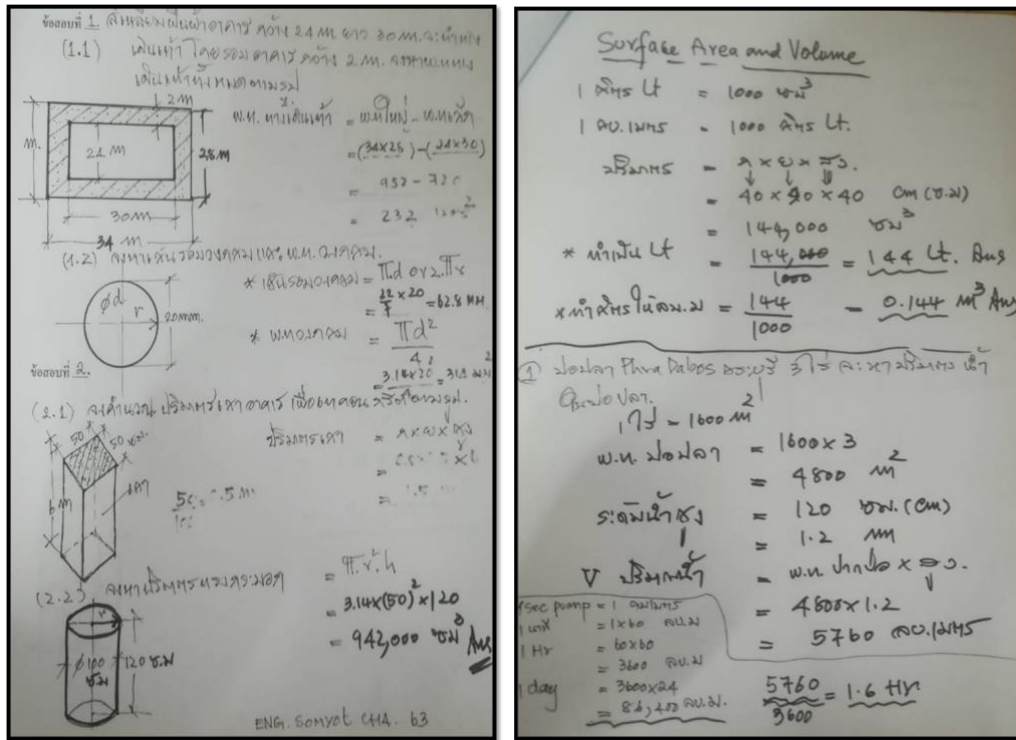 ข้อสอบที่ 1. สี่เหลี่ยมผืนผ้าอาคาร กว้าง 24 m ยาว 30 m. จะทำทาง
(1.1) เดินเท้า โดยรอบอาคาร กว้าง 2 m. จงหาพ.ท.ทาง
เดินเท้าทั้งหมดตามรูป
2 m
m.
24 m
28 m
30 m
34 m
พ.ท. ทางเดินเท้า = พ.ท.ใหญ่ - พ.ท.เล็ก
= (34x28) - (24x30)
= 952 - 720
= 232
(1.2) จงหาเส้นรอบวงกลมและ พ.ท. วงกลม.
* เส้นรอบวงกลม = πd or 2πr
22/7 x 20 = 62.8 MM.
ød
r
20mm.
* พ.ท.วงกลม = πd²/4
= 314 มม²
ข้อสอบที่ 2.
(2.1) จงคำนวณ ปริมาตรเสาอาคาร เพื่อเทคอนกรีตตามรูป.
50
50 ซม.
6 m
เสา
ปริมาตรเสา = ก x ย x สูง
(2.2) จงหาปริมาตรทรงกระบอก = π.r².h
= 3.14x(50)² x 120
= 942,000 ซม³ Ans
r
ø100 ซม
120 ซ.ม
ENG. SOMYOT CHA. 63
Surface Area and Volume
1 ลิตร Lt = 1000 ซม³
1 ลบ.เมตร = 1000 ลิตร Lt.
ปริมาตร = ก x ย x ส.
= 40 x 90 x 40 cm (ซ.ม)
= 144,000 ซม³
* ทำเป็น Lt = 144,000/1000 = 144 Lt. Ans
* ทำลิตรให้ลบ.ม = 144/1000 = 0.144 m³ Ans
① บ่อปลา Phra Dabos 3 ไร่ จะหาปริมาตรน้ำ
ในบ่อปลา.
1 ไร่ = 1600 m²
พ.ท. บ่อปลา = 1600 x 3
= 4800 m²
ระดับน้ำสูง = 120 ซม. (cm)
= 1.2 m
V ปริมาณน้ำ = พ.ท. ปากบ่อ x ส.
= 4800 x 1.2
= 5760 ลบ.เมตร
1 sec pump = 1
= 1x60 ลบ.ม
1 Hr = 60x60
= 3600 ลบ.ม
1 day = 3600x24
= 86,400 ลบ.ม.
5760/3600 = 1.6 Hr